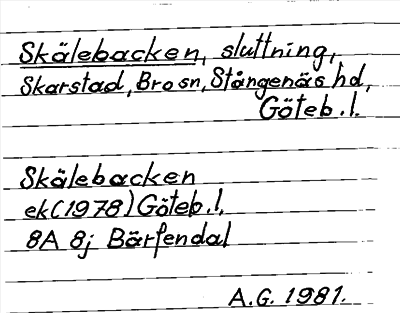 Skälebacken, sluttning,
Skarstad, Bro sn, Stångenäs hd,
Göteb. l.
Skälebacken
ek (1978) Göteb. l.
8A 8j Bärfendal
A.G. 1981.